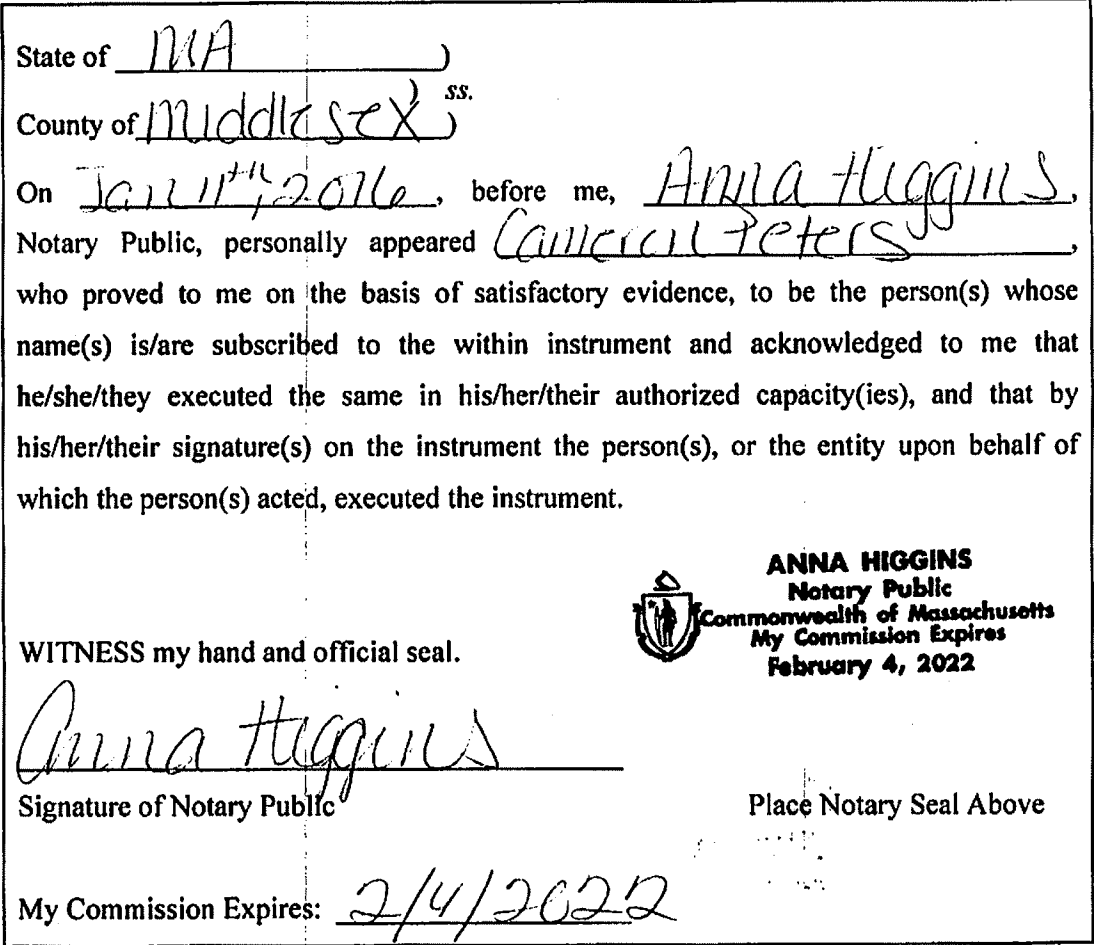 State of MA )
) ss.
County of Middlesex )
On Jan 11th, 2016, before me, Anna Higgins,
Notary Public, personally appeared Cameron Peters,
who proved to me on the basis of satisfactory evidence, to be the person(s) whose
name(s) is/are subscribed to the within instrument and acknowledged to me that
he/she/they executed the same in his/her/their authorized capacity(ies), and that by
his/her/their signature(s) on the instrument the person(s), or the entity upon behalf of
which the person(s) acted, executed the instrument.
ANNA HIGGINS
Notary Public
Commonwealth of Massachusetts
My Commission Expires
February 4, 2022
WITNESS my hand and official seal.
Anna Higgins
Signature of Notary Public
Place Notary Seal Above
My Commission Expires: 2/4/2022